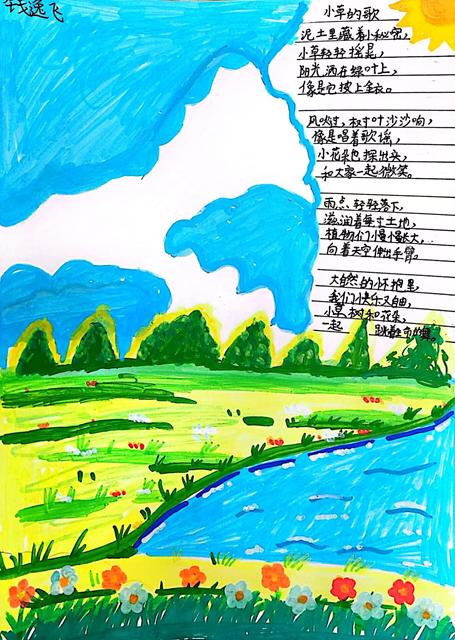 钱逸飞
小草的歌
泥土里藏着小秘密，
小草轻轻摇晃，
阳光洒在绿叶上，
像是它披上金衣。
风吹过，树叶沙沙响，
像是唱着歌谣，
小花朵也探出头，
和大家一起微笑。
雨点轻轻落下，
滋润着每寸土地，
植物们慢慢长大，
向着天空伸出手臂。
大自然的怀抱里，
我们快乐又自由，
小草、树和花朵，
一起 跳着生命的舞。